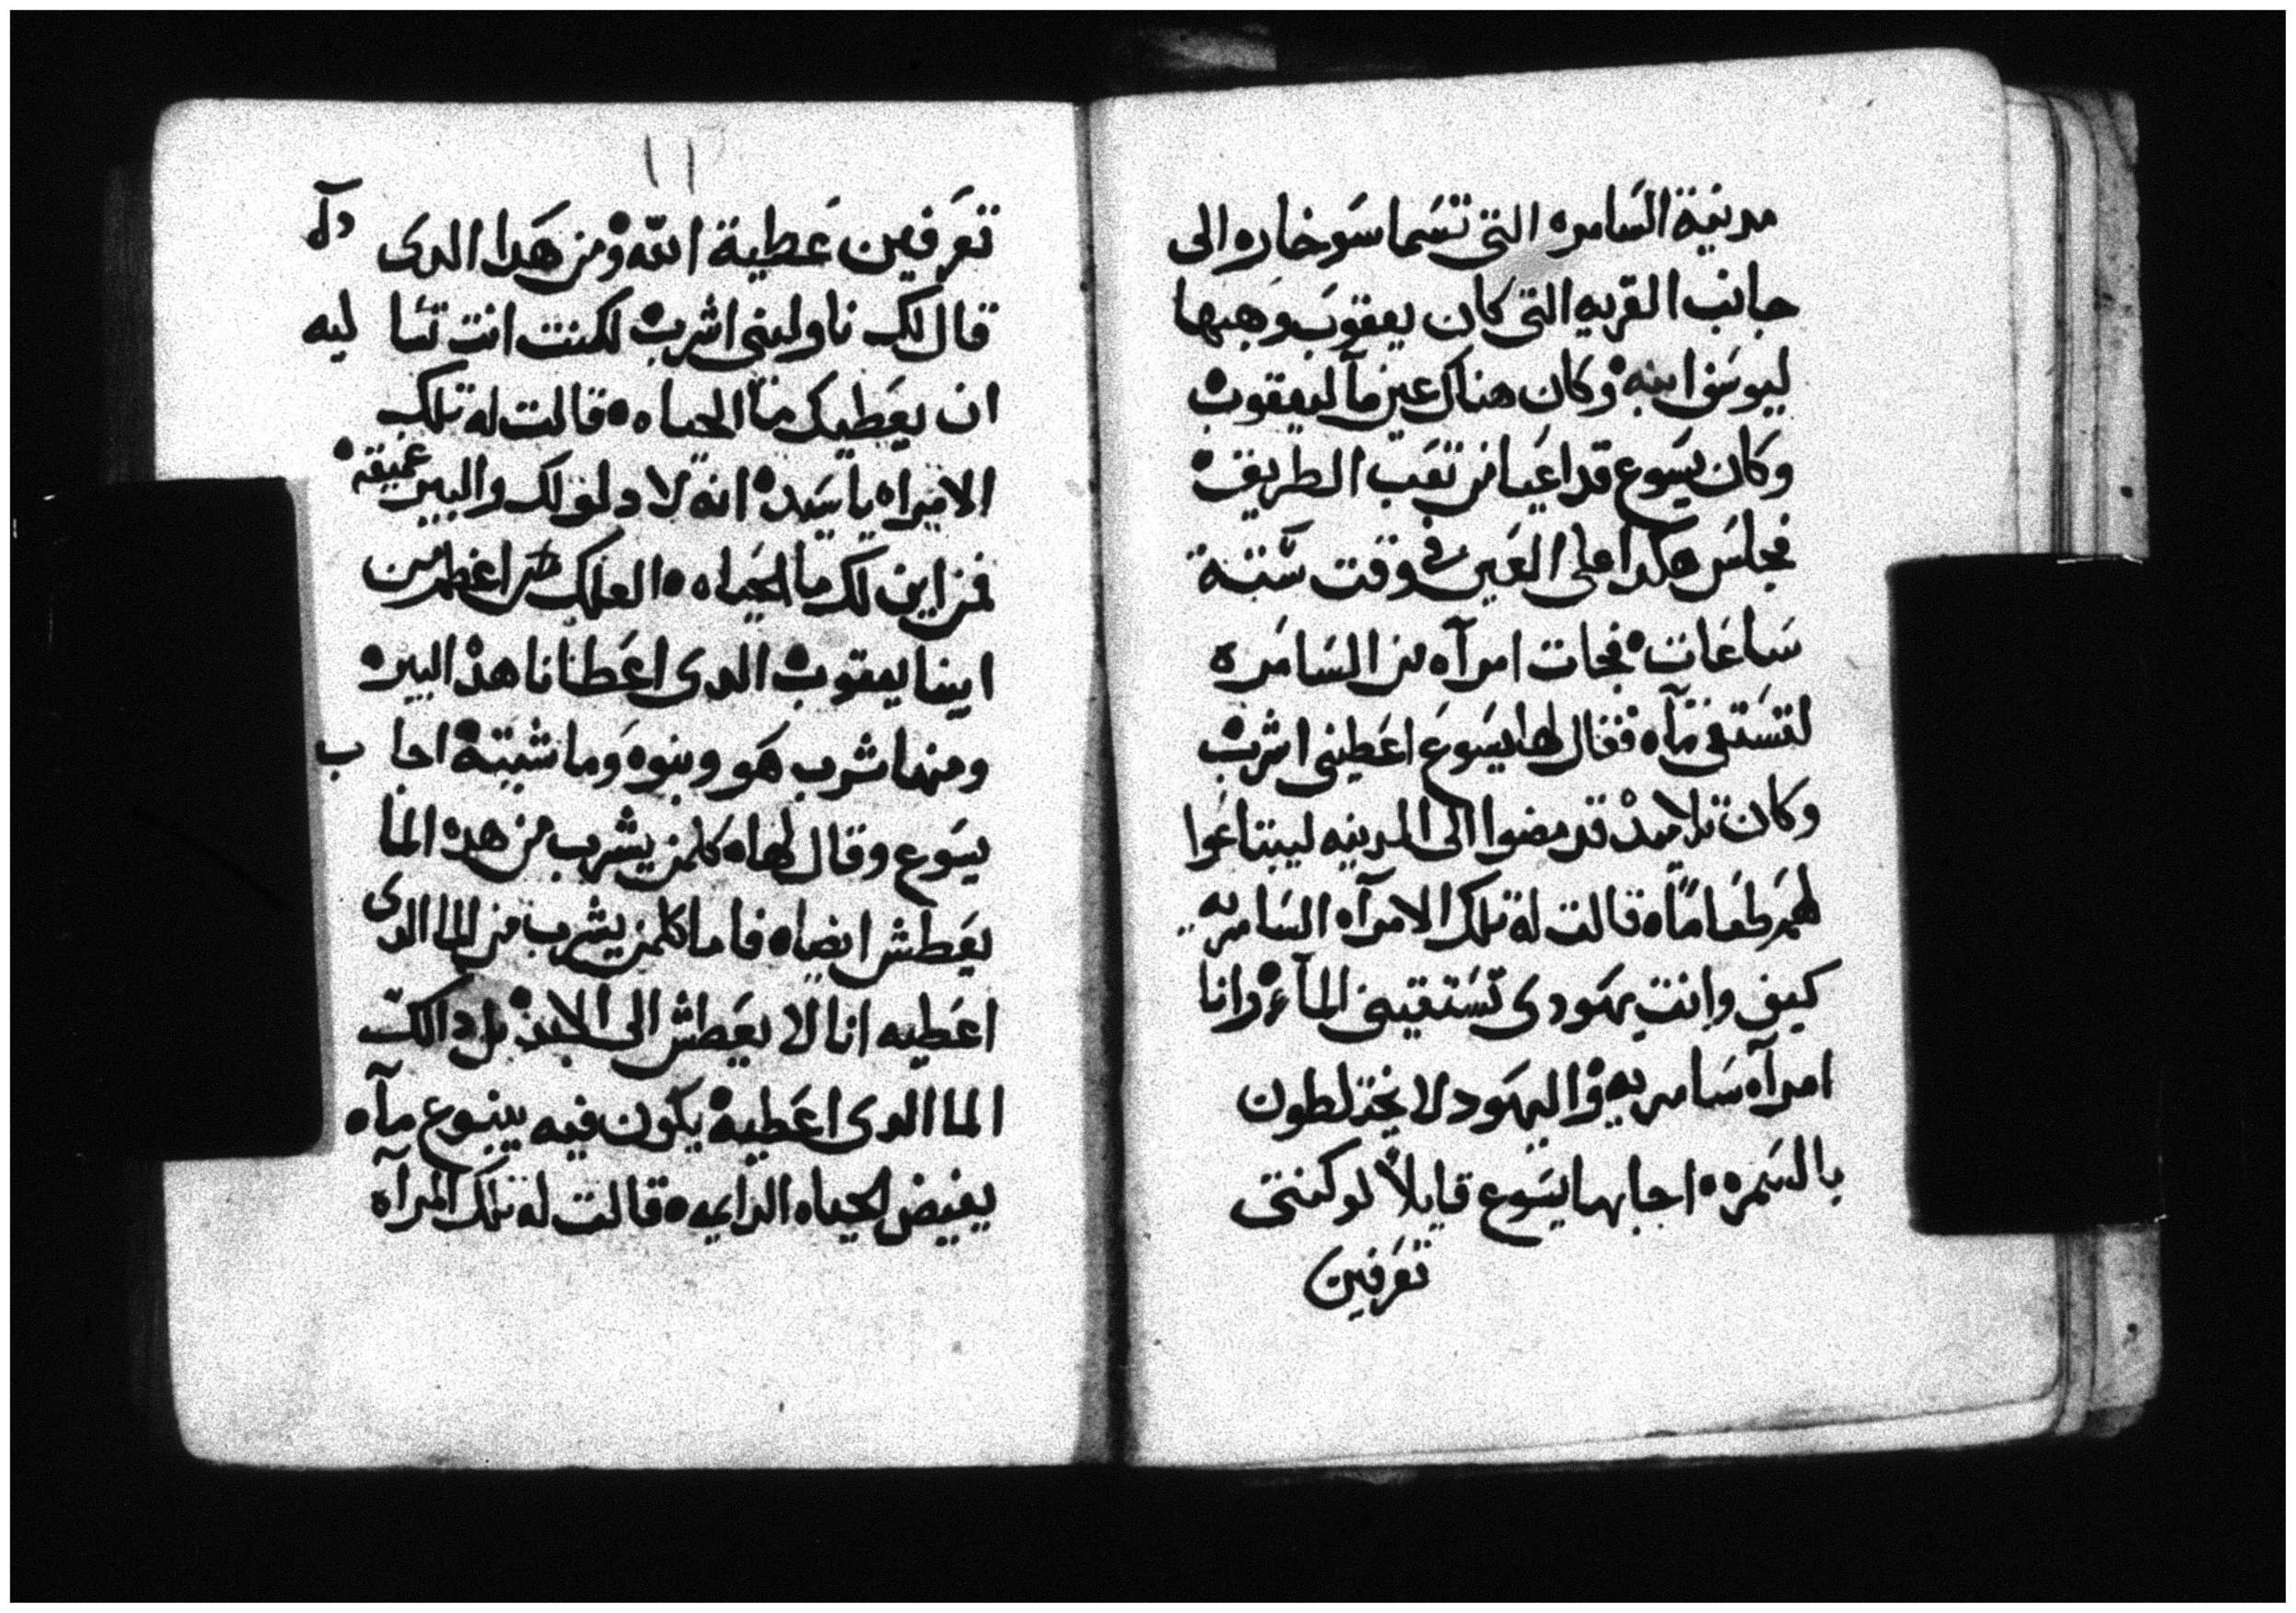 مدينة السامره التى تسما سوخاره الى
جانب القريه التى كان يعقوب وهبها
ليوسف ابنه وكان هناك عين مآ ليعقوب
وكان يسوع قد اعيا من تعب الطريق
فجلس هكدا على العين فى وقت ستة
ساعات فجات امرآه من السامره
لتستقى مآه فقال لها يسوع اعطينى اشرب
وكان تلاميده قد مضوا الى المدينه ليبتاعوا
لهم طعامًاه قالت له تلك الامرآه السامريه
كيف وانت يهودى تستقينى المآء وانا
امرآه سامريه واليهود لا يختلطون
بالسمره اجابها يسوع قايلاً لو كنتى
تعرفين
١١
تعرفين عطية الله ومن هدا الدى
قال لك ناولينى اشرب لكنت انت تسا ليه
ان يعطيك مآ الحياه قالت له تلك
الامراه يا سيد انه لا دلو لك والبير عميقه
فمن اين لك ما الحياه العلك اعظم من
ابينا يعقوب الدى اعطانا هده البير
ومنها شرب هو وبنوه وماشيته اجا ب
يسوع وقال لهاه كلمن يشرب من هده الما
يعطش ايضاه فاما كلمن يشرب من الما الدى
اعطيه انا لا يعطش الى الابد بل دالك
الما الدى اعطيه يكون فيه ينبوع مآه
يفيض لحياه الدايمه قالت له تلك المرآه